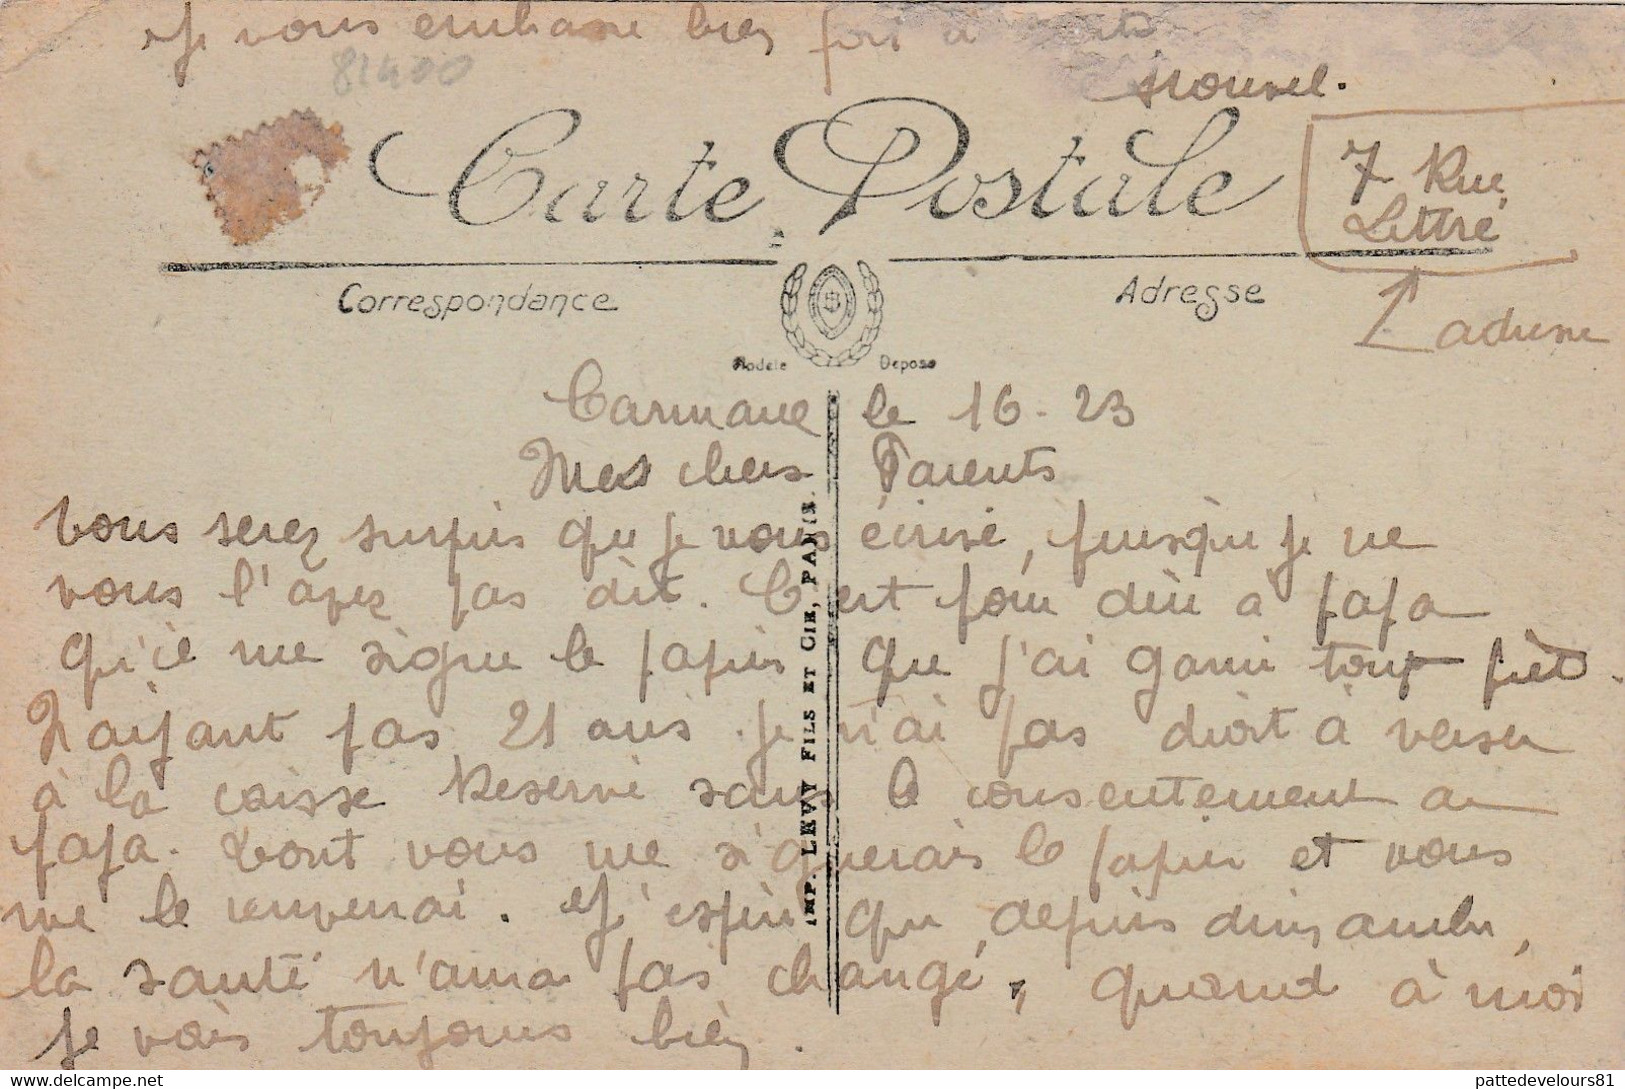 Je vous embrasse bien fort a
81400
Nouvel.
Carte Postale
7 Rue
Littré
Correspondance
Adresse
adresse
Modele Depose
Carmaux le 16 - 23
Mes chers Parents
Vous serez surpris qu je vous écrisé, puisqu je ne
vous l'avez pas dit. C'est pour dire à papa
qu'il me signe le papier que j'ai garni tout prèt.
N'aiyant pas 21 ans je n'ai pas droit à verser
à la caisse Reserve sans le consentement a
papa. Dont vous me signerais le papier et vous
me le renverrai. et j'espèr qu, depuis dimanche,
la santé n'aura pas changé, quand à moi
je vais toujours bièn.
IMP. LEVY FILS ET CIE, PARIS.
pattedevelours81